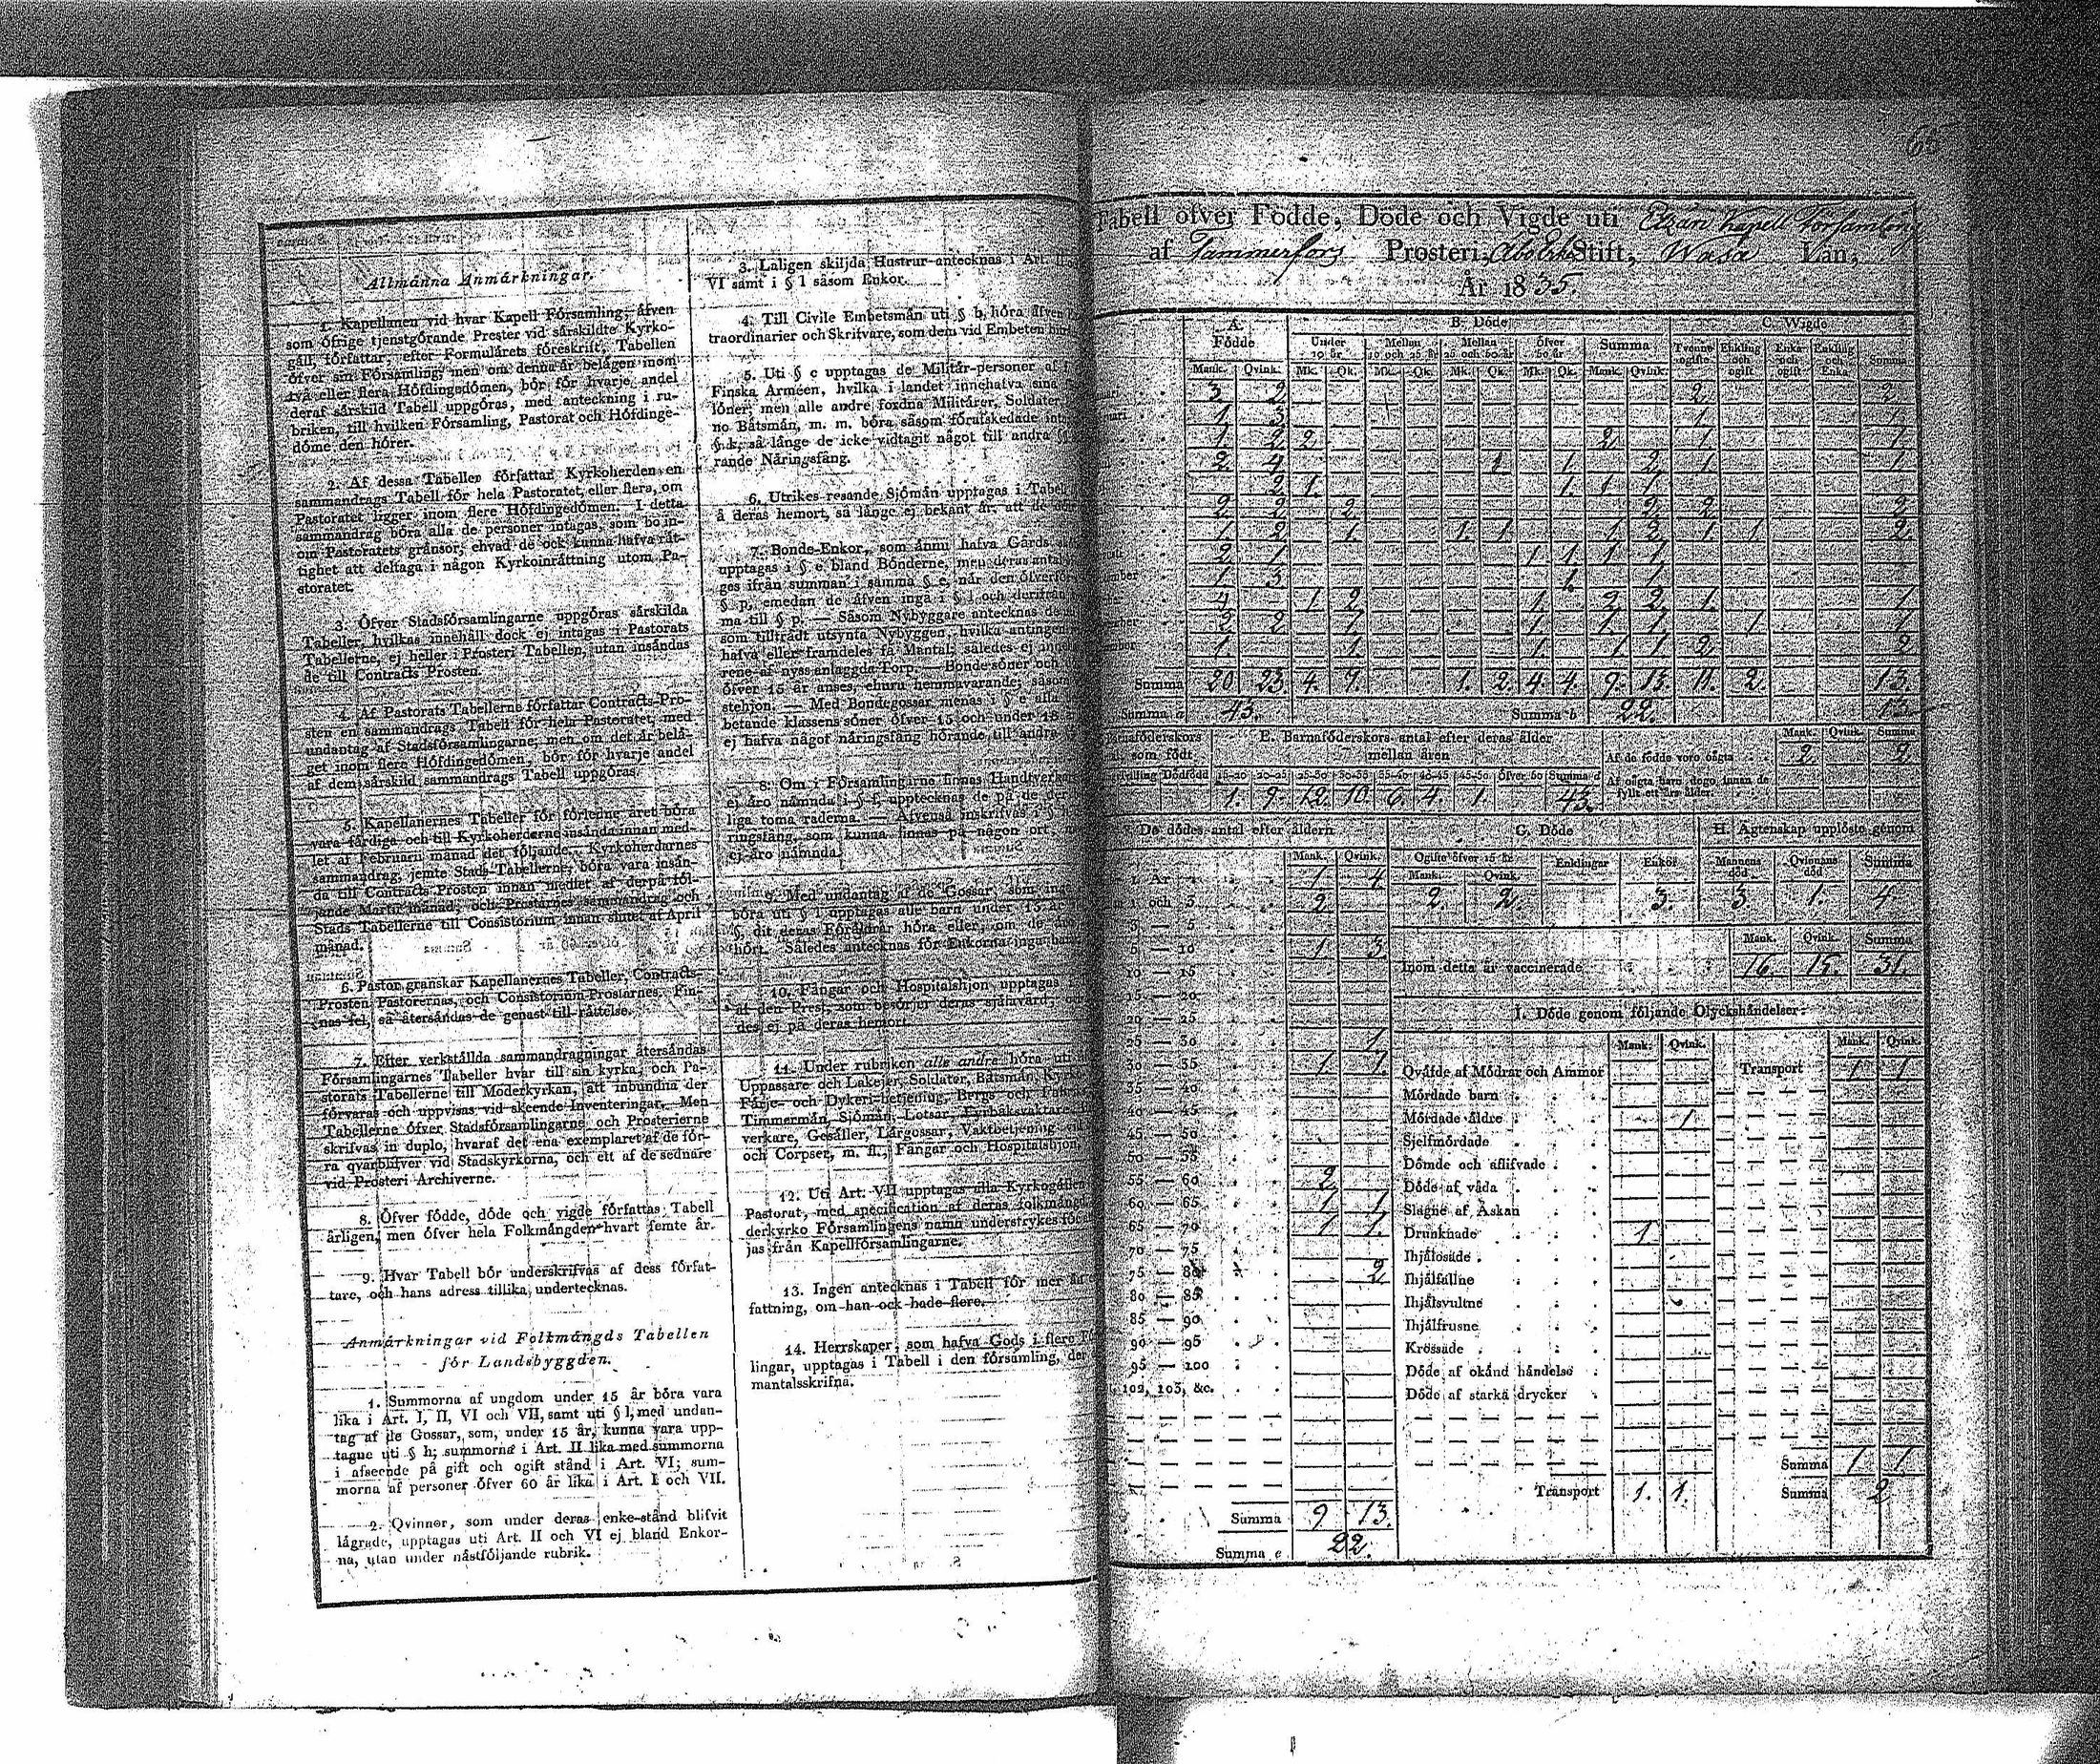 65
Allmänna Anmärkningar.
1. Kapellanen vid hvar Kapell Församling, äfven
som öfrige tjenstgörande Prester vid särskildte Kyrko-
gäll, författar, efter Formulärets föreskrift, Tabellen
öfver sin Församling; men om denna är belägen inom
två eller flera Höfdingedömen, bör för hvarje andel
deraf särskild Tabell uppgöras, med anteckning i ru-
briken, till hvilken Församling, Pastorat och Höfdinge-
döme den hörer.
2. Af dessa Tabeller författar Kyrkoherden en
sammandrags Tabell för hela Pastoratet, eller flera, om
Pastoratet ligger inom flere Höfdingedömen. I detta
sammandrag böra alla de personer intagas, som bo in-
om Pastoratets gränsor, ehvad de ock kunna hafva rät-
tighet att deltaga i någon Kyrkoinrättning utom Pa-
storatet.
3. Öfver Stadsförsamlingarne uppgöras särskilda
Tabeller, hvilkas innehåll dock ej intagas i Pastorats
Tabellerne, ej heller i Prosteri Tabellen, utan insändas
de till Contracts Prosten.
4. Af Pastorats Tabellerne författar Contracts-Pro-
sten en sammandrags Tabell för hela Pastoratet, med
undantag af Stadsförsamlingarne; men om det är belä-
get inom flere Höfdingedömen, bör för hvarje andel
af dem särskild sammandrags Tabell uppgöras.
5. Kapellanernes Tabeller för förledne året böra
vara färdiga och till Kyrkoherderne insända innan med-
let af Februarii månad det följande. Kyrkoherdarnes
sammandrag, jemte Stads-Tabellerne, böra vara insän-
da till Contracts Prosten innan medlet af derpå föl-
jande Martii månad, och Prostarnes sammandrag och
Stads Tabellerne till Consistorium innan slutet af April
månad.
6. Pastor granskar Kapellanernes Tabeller, Contracts-
Prosten Pastorernas, och Consistorium Prostarnes. Fin-
nas fel, så återsändas de genast till rättelse.
7. Efter verkställda sammandragningar återsändas
Församlingarnes Tabeller hvar till sin kyrka, och Pa-
storats Tabellerne till Moderkyrkan, att inbundna der
förvaras och uppvisas vid skeende Inventeringar. Men
Tabellerne öfver Stadsförsamlingarne och Prosterierne
skrifvas in duplo, hvaraf det ena exemplaret af de för-
ra qvarblifver vid Stadskyrkorna, och ett af de sednare
vid Prosteri Archiverne.
8. Öfver födde, döde och vigde författas Tabell
årligen, men öfver hela Folkmängden hvart femte år.
9. Hvar Tabell bör underskrifvas af dess förfat-
tare, och hans adress tillika undertecknas.
Anmärkningar vid Folkmängds Tabellen
för Landsbyggden.
1. Summorna af ungdom under 15 år böra vara
lika i Art. I, II, VI och VII, samt uti § l, med undan-
tag af de Gossar, som, under 15 år, kunna vara upp-
tagne uti § h; summorna i Art. II lika med summorna
i afseende på gift och ogift stånd i Art. VI; sum-
morna af personer öfver 60 år lika i Art. I och VII.
2. Qvinnor, som under deras enke-stånd blifvit
lägrade, upptagas uti Art. II och VI ej bland Enkor-
na, utan under nästföljande rubrik.
3. Laligen skiljda Hustrur antecknas i Art.
VI samt i § l såsom Enkor.
4. Till Civile Embetsmän uti § b, höra äfven
traordinarier och Skrifvare, som dem vid Embeten
5. Uti § c upptagas de Militär-personer af
Finska Arméen, hvilka i landet innehafva sina
löner; men alle andre forдna Militärer, Soldater,
no Båtsmän, m. m. böra såsom förafskedade
§ k, så länge de icke vidtagit något till andra §§
rande Näringsfång.
6. Utrikes resande Sjömän upptagas i Tabel
å deras hemort, så länge ej bekant är, att de
7. Bonde-Enkor, som ännu hafva Gårds
upptagas i § e bland Bönderne, men deras antal
ges ifrån summan i samma § e, när den öfverför
§ p, emedan de äfven ingå i § l och derifrån
ma till § p. — Såsom Nybyggare antecknas de
som tillträdt utsynta Nybyggen, hvilka antingen
hafva eller framdeles få Mantal; således ej
rene af nyss anlaggda Torp. — Bondesöner och
öfver 15 år anses, ehuru hemmavarande, såsom
stehjon. — Med Bondegossar menas i § e alla
betande klassens söner öfver 15 och under 18
ej hafva något näringsfång hörande till andra
8. Om i Församlingarne finnas Handtverkare
ej äro nämnda i § f, upptecknas de på de der
liga toma raderna. — Äfvenså inskrifvas i §
ringsfång, som kunna finnas på någon ort,
ej äro nämnda.
9. Med undantag af de Gossar, som
böra uti § l upptagas alle barn under 15 år
§, dit deras Föräldrar höra eller, om de
hört. Således antecknas för Enkorna inga barn
10. Fångar och Hospitalshjon upptagas
af den Prest, som besörjer deras själavård,
des ej på deras hemort.
11. Under rubriken alle andre höra uti
Uppassare och Lakejer, Soldater, Båtsmän, Kyrk
Färje- och Dykeri-betjening, Bergs och
Timmermän, Sjömän, Lotsar, Fyrbåksvaktare,
verkare, Gesäller, Lärgossar, Vaktbetjening vid
och Corpser, m. fl., Fångar och Hospitalshjon.
12. Uti Art. VII upptagas alla Kyrkogällen
Pastorat, med specification af deras folkmängd
derkyrko Församlingens namn understrykes för
jas från Kapellförsamlingarne.
13. Ingen antecknas i Tabell för mer än
fattning, om han ock hade flere.
14. Herrskaper, som hafva Gods i flere
lingar, upptagas i Tabell i den församling, der
mantalsskrifna.
Tabell öfver Födde, Döde och Vigde uti Etzäri Kapell Församling
af Tammerfors Prosteri, Åbo Erke Stift, Wasa Län,
År 1835.
A. Födde B. Döde C. Wigde
Under 10 år. Mellan 10 och 25 år Mellan 25 och 50 år Öfver 50 år Summa Tvenne ogifte Enkling och ogift Enka och ogift Enkling och Enka Summa
Mank. Qvink. Mk. Qk. Mk. Qk. Mk. Qk. Mk. Qk. Mank. Qvink.
3 2 2 2
1 3 1 1
1 2 2 2 1 1
2 4 1 1 2 1 1
2 1 1 1 1
2 2 2 2 2 2
1 2 1 1 1 1 2 1 1 2
2 1 1 1 1 1
1 3 1 1
4 1 2 1 2 2 1 1
2 2 1 1 1 1 1 1
1 1 1 1 1 2 2
Summa 20 23 4 7 1 2 4 4 9 13 11 2 13
Summa a 43 Summa b 22 13
Barnaföderskors som födt
E. Barnaföderskors antal efter deras ålder
mellan åren
Dödfödd 15-20 20-25 25-30 30-35 35-40 40-45 45-50 Öfver 50 Summa d
1. 9. 12. 10. 6. 4. 1. 43.
Mank. Qvink. Summa
Af de födde voro oägta 2 2
Af oägta barn dogo innan de
fyllt ett års ålder.
De dödes antal efter åldern
Mank. Qvink.
1 År 1 4
1 och 3 2
3 — 5
5 — 10 1 3
10 — 15
15 — 20
20 — 25
25 — 30 1
30 — 35 1 1
35 — 40
40 — 45
45 — 50
50 — 55
55 — 60 2
60 — 65 1 1
65 — 70 1 1
70 — 75
75 — 80 2
80 — 85
85 — 90
90 — 95
95 — 100
102, 103, &c.
Summa 9 13
Summa e 22
G. Döde
Ogifte öfver 15 år Enklingar Enkor
Mank. Qvink.
2. 2. 3.
H. Ägtenskap upplöste genom
Mannens död Qvinnans död Summa
3 1. 4.
Mank. Qvink. Summa
Inom detta år vaccinerade 16. 15. 31.
I. Döde genom följande Olyckshändelser:
Mank. Qvink. Mank. Qvink.
Qväfde af Mödrar och Ammor Transport 1 1
Mördade barn
Mördade äldre 1
Sjelfmördade
Dömde och aflifvade
Döde af våda
Slagne af Åskan
Drunknade 1
Ihjälosade
Ihjälfallne
Ihjälsvultne
Ihjälfrusne
Krossade
Döde af okänd händelse
Döde af starka drycker
Summa 1 1
Transport 1. 1. Summa 2